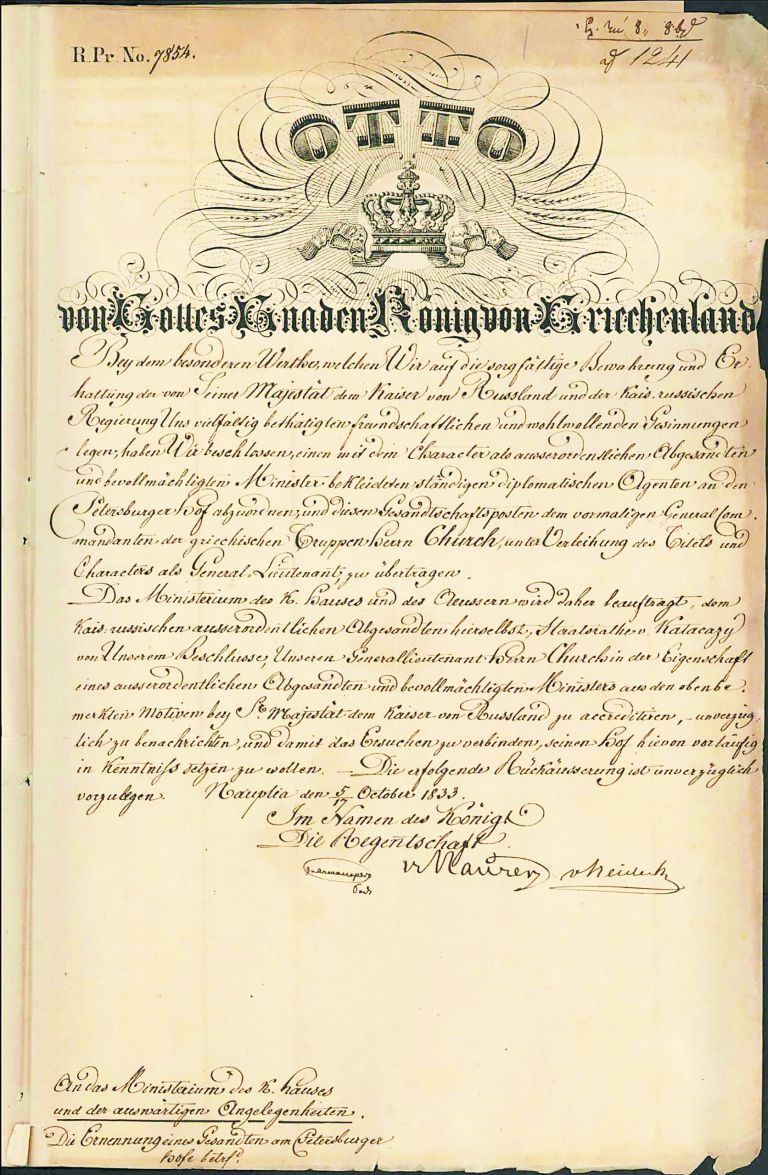 R. Pr. No. 7854.
1241
OTTO
von Gottes Gnaden König von Griechenland
Bey dem besonderen Werthe, welchen Wir auf die sorgfältige Bewahrung und Er-
haltung der von Seiner Majestät dem Kaiser von Russland und der Kais. russischen
Regierung Uns vielfältig bethätigten freundschaftlichen und wohlwollenden Gesinnungen
legen, haben Wir beschlossen, einen mit dem Character als ausserordentlichen Abgesandten
und bevollmächtigten Minister bekleideten ständigen diplomatischen Agenten an den
Petersburger Hof abzuordnen, und diesen Gesandtschaftsposten dem vormaligen General Com-
mandanten der griechischen Truppen Herrn Church, unter Verleihung des Titels und
Characters als General-Lieutenant, zu übertragen.
Das Ministerium des K. Hauses und des Aeussern wird daher beauftragt, dem
Kais. russischen ausserordentlichen Abgesandten hierselbst, Staatsrathe v. Katacazy
von Unserem Beschlusse, Unseren Generallieutenant Herrn Church in der Eigenschaft
eines ausserordentlichen Abgesandten und bevollmächtigten Ministers aus den obenbe-
merkten Motiven bey Sr. Majestät dem Kaiser von Russland zu accreditiren, unverzüg-
lich zu benachrichten, und damit das Ersuchen zu verbinden, seinen Hof hievon vorläufig
in Kenntniss setzen zu wollen. — Die erfolgende Rückäusserung ist unverzüglich
vorzulegen. Nauplia den 5/17 October 1833.
Im Namen des Königs
Die Regentschaft
v Maurer v Heideck
An das Ministerium des K. Hauses
und der auswärtigen Angelegenheiten.
Die Ernennung eines Gesandten am Petersburger
Hofe betrf.